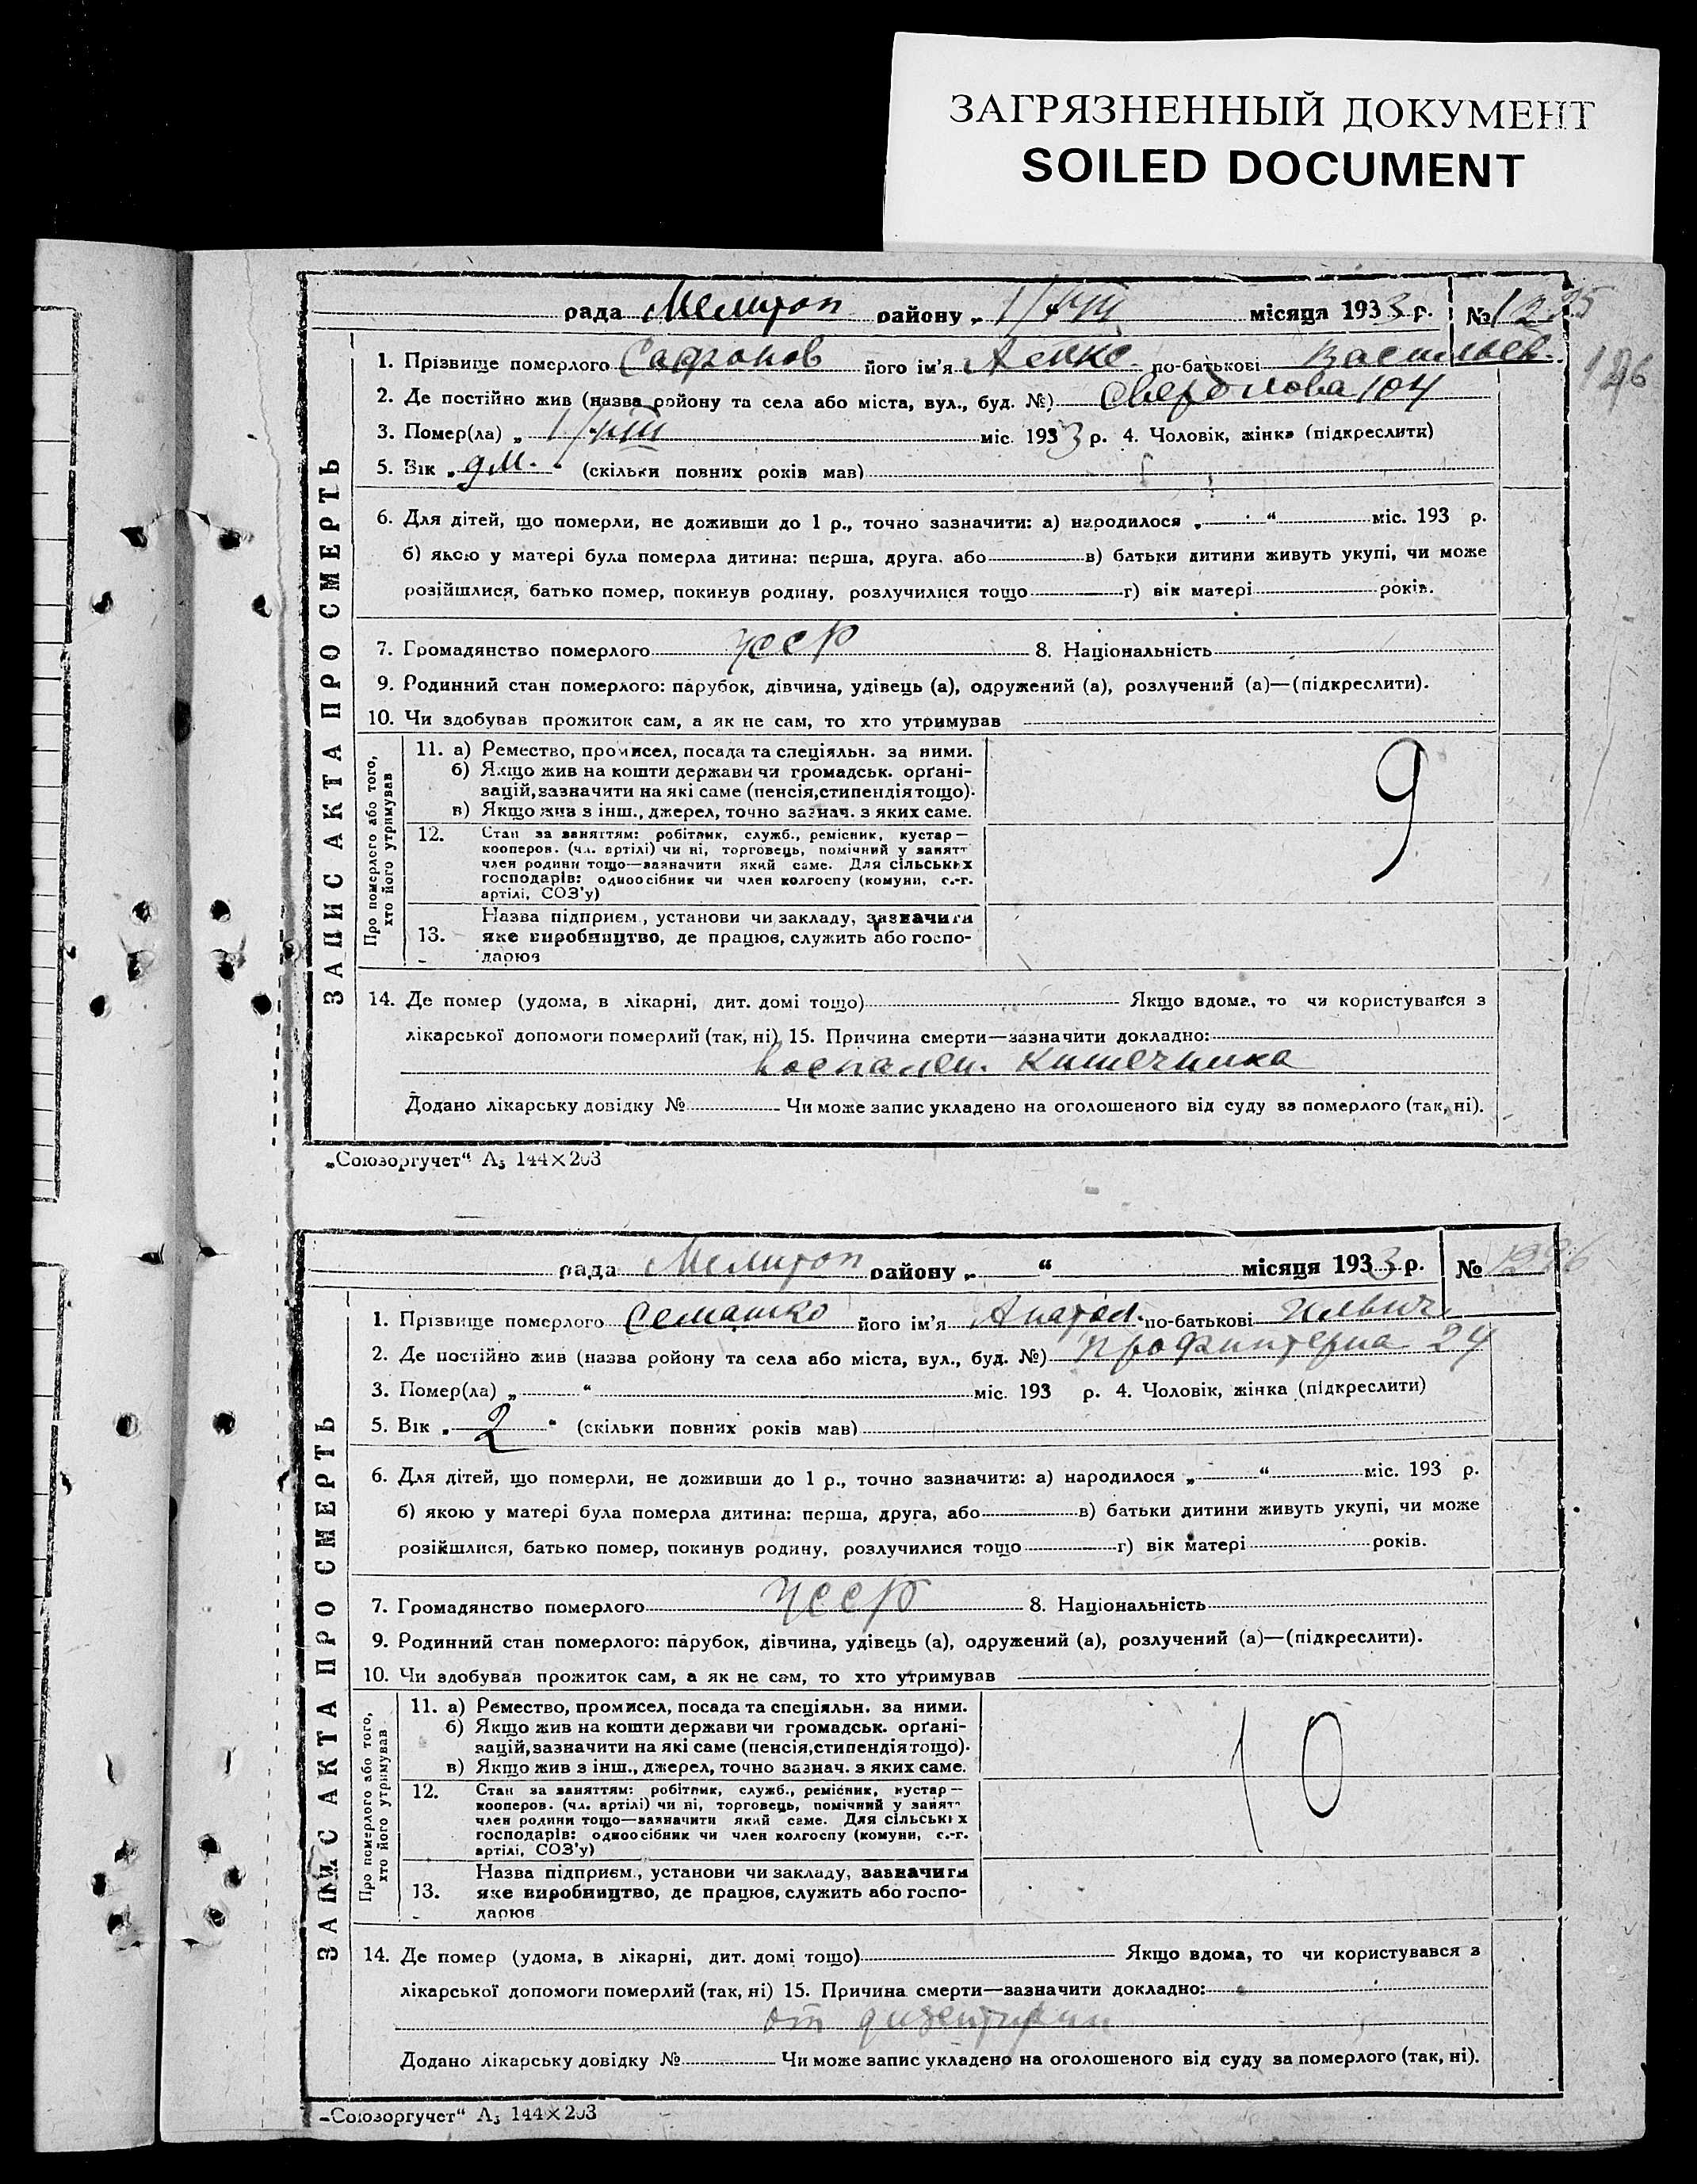 ЗАГРЯЗНЕННЫЙ ДОКУМЕНТ
SOILED DOCUMENT
рада Мелитоп району „ 1/VIII місяця 1933 р. №
1. Прізвище померлого Сафронов його ім'я по-батькові Васильев.
2. Де постійно жив (назва ройону та села або міста, вул., буд. №) Свердлова 104
3. Помер(ла) „ 1/VIII міс. 1933 р. 4. Чоловік, жінка (підкреслити)
5. Вік „ 9 м. “ (скільки повних років мав)
6. Для дітей, що померли, не доживши до 1 р., точно зазначити: а) народилося „ “ міс. 193 р.
б) якою у матері була померла дитина: перша, друга, або в) батьки дитини живуть укупі, чи може
розійшлися, батько помер, покинув родину, розлучилися тощо г) вік матері років.
7. Громадянство померлого УССР 8. Національність
9. Родинний стан померлого: парубок, дівчина, удівець (а), одружений (а), розлучений (а)—(підкреслити).
10. Чи здобував прожиток сам, а як не сам, то хто утримував
ЗАПИС АКТА ПРО СМЕРТЬ
Про померлого або того, хто його утримував
11. а) Ремество, промисел, посада та спеціяльн. за ними.
б) Якщо жив на кошти держави чи громадськ. орґані-
зацій, зазначити на які саме (пенсія, стипендія тощо).
в) Якщо жив з інш., джерел, точно зазнач. з яких саме.
9
12. Стан за заняттям: робітник, служб., ремісник, кустар—
кооперов. (чл. артілі) чи ні, торговець, помічний у занятт
член родини тощо—зазначити який саме. Для сільських
господарів: одноосібник чи член колгоспу (комуни, с.-г.
артілі, СОЗ'у)
Назва підприєм., установи чи закладу, зазначити
13. яке виробництво, де працює, служить або госпо-
дарює
14. Де помер (удома, в лікарні, дит. домі тощо) Якщо вдома, то чи користувався з
лікарської допомоги померлий (так, ні) 15. Причина смерти—зазначити докладно:
воспален. кишечника
Додано лікарську довідку № Чи може запис укладено на оголошеного від суду за померлого (так, ні).
„Союзоргучет“ А5 144×203
рада Мелитоп району „ “ місяця 1933 р. №
1. Прізвище померлого Семашко його ім'я Анатол. по-батькові Ильич
2. Де постійно жив (назва ройону та села або міста, вул., буд. №) Профинтерна 24
3. Помер(ла) „ “ міс. 193 р. 4. Чоловік, жінка (підкреслити)
5. Вік „ 2 “ (скільки повних років мав)
6. Для дітей, що померли, не доживши до 1 р., точно зазначити: а) народилося „ “ міс. 193 р.
б) якою у матері була померла дитина: перша, друга, або в) батьки дитини живуть укупі, чи може
розійшлися, батько помер, покинув родину, розлучилися тощо г) вік матері років.
7. Громадянство померлого УССР 8. Національність
9. Родинний стан померлого: парубок, дівчина, удівець (а), одружений (а), розлучений (а)—(підкреслити).
10. Чи здобував прожиток сам, а як не сам, то хто утримував
ЗАПИС АКТА ПРО СМЕРТЬ
Про померлого або того, хто його утримував
11. а) Ремество, промисел, посада та спеціяльн. за ними.
б) Якщо жив на кошти держави чи громадськ. орґані-
зацій, зазначити на які саме (пенсія, стипендія тощо).
в) Якщо жив з інш., джерел, точно зазнач. з яких саме.
10
12. Стан за заняттям: робітник, служб., ремісник, кустар—
кооперов. (чл. артілі) чи ні, торговець, помічний у занятт
член родини тощо—зазначити який саме. Для сільських
господарів: одноосібник чи член колгоспу (комуни, с.-г.
артілі, СОЗ'у)
Назва підприєм., установи чи закладу, зазначити
13. яке виробництво, де працює, служить або госпо-
дарює
14. Де помер (удома, в лікарні, дит. домі тощо) Якщо вдома, то чи користувався з
лікарської допомоги померлий (так, ні) 15. Причина смерти—зазначити докладно:
от дизентерии
Додано лікарську довідку № Чи може запис укладено на оголошеного від суду за померлого (так, ні).
„Союзоргучет“ А5 144×203